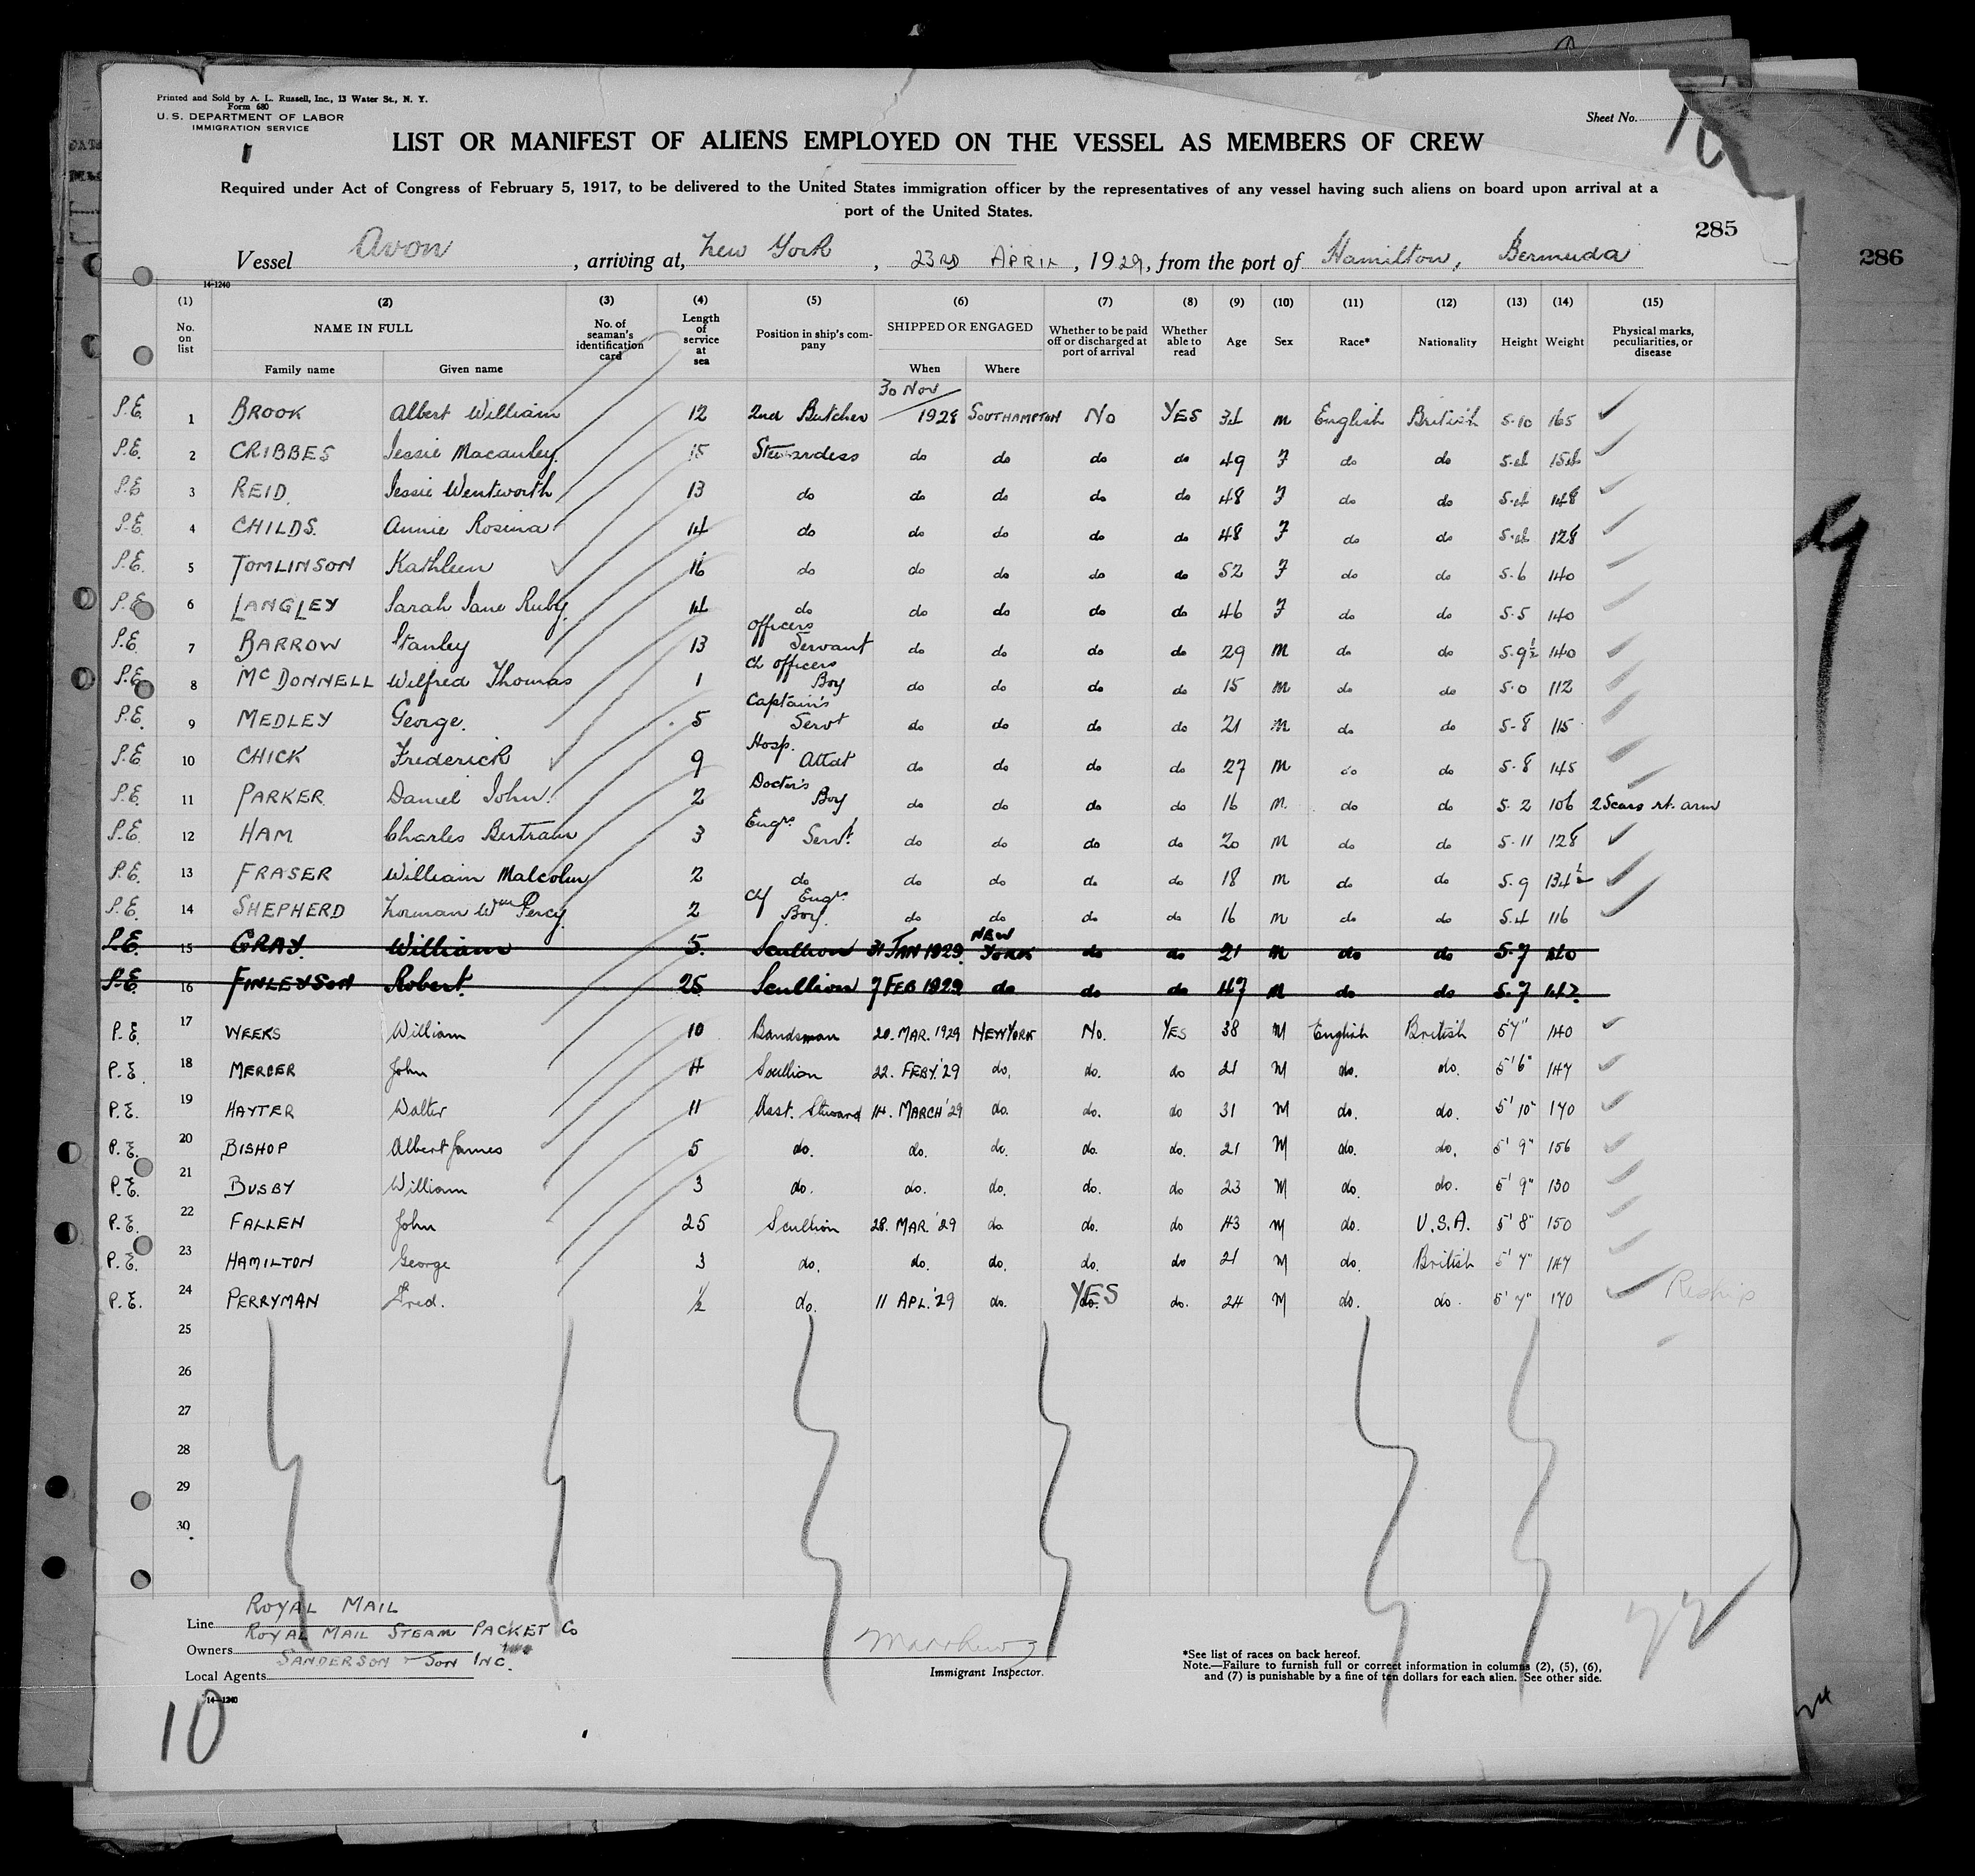 Printed and Sold by A. L. Russell, Inc., 13 Water St., N. Y.
Form 680
U. S. DEPARTMENT OF LABOR
IMMIGRATION SERVICE
Sheet No.
LIST OR MANIFEST OF ALIENS EMPLOYED ON THE VESSEL AS MEMBERS OF CREW
Required under Act of Congress of February 5, 1917, to be delivered to the United States immigration officer by the representatives of any vessel having such aliens on board upon arrival at a
port of the United States.
285
286
Vessel Avon, arriving at, New York, 23RD APRIL, 1929, from the port of Hamilton, Bermuda
14-1240
(1) (2) (3) (4) (5) (6) (7) (8) (9) (10) (11) (12) (13) (14) (15)
No. on list NAME IN FULL Family name Given name No. of seaman's identification card Length of service at sea Position in ship's company SHIPPED OR ENGAGED When Where Whether to be paid off or discharged at port of arrival Whether able to read Age Sex Race* Nationality Height Weight Physical marks, peculiarities, or disease
P.E. 1 BROOK Albert William 12 2nd Butcher 30 Nov 1928 SOUTHAMPTON No YES 34 M English British 5.10 165
P.E. 2 CRIBBES Jessie Macauley 15 Stewardess do do do do 49 F do do 5.4 154
P.E. 3 REID Jessie Wentworth 13 do do do do do 48 F do do 5.4 148
P.E. 4 CHILDS. Annie Rosina 14 do do do do do 48 F do do 5.4 128
P.E. 5 TOMLINSON Kathleen 16 do do do do do 52 F do do 5.6 140
P.E. 6 LANGLEY Sarah Jane Ruby 14 do do do do do 46 F do do 5.5 140
P.E. 7 BARROW Stanley 13 Officers Servant do do do do 29 M do do 5.9½ 140
P.E. 8 McDONNELL Wilfred Thomas 1 Ch officers Boy do do do do 15 M do do 5.0 112
P.E. 9 MEDLEY George. 5 Captain's Servt do do do do 21 M do do 5-8 115
P.E. 10 CHICK Frederick 9 Hosp. Attdt do do do do 27 M do do 5.8 145
P.E. 11 PARKER Daniel John. 2 Doctor's Boy do do do do 16 M. do do 5.2 106 2 Scars rt. arm
P.E. 12 HAM. Charles Bertram 3 Engrs Servt. do do do do 20 M do do 5.11 128
P.E. 13 FRASER William Malcolm 2 do do do do do 18 M do do 5.9 134½
P.E. 14 SHEPHERD Norman Wm Percy 2 Chf Engrs Boy do do do do 16 M do do 5.4 116
P.E. 15 GRAY. William 5. Scullion 31 JAN 1929. NEW YORK do do 21 M do do 5.7 140
P.E. 16 FINLEYSON Robert. 25 Scullion 7 FEB 1929 do do do 47 M do do 5.7 147.
P.E. 17 WEEKS William 10 Bandsman 20. MAR. 1929 NEW YORK No. YES 38 M English British 5'7" 140
P.E. 18 MERCER John 4 Scullion 22. FEBY. '29 do. do. do 21 M do. do. 5'6" 147
P.E. 19 HAYTER Walter 11 Asst. Steward 14. MARCH '29 do. do. do 31 M do. do. 5'10" 170
P.E. 20 BISHOP Albert James 5 do. do. do. do. do. 21 M do. do. 5'9" 156
P.E. 21 BUSBY William 3 do. do. do. do. do 23 M do. do. 5'9" 130
P.E. 22 FALLEN John 25 Scullion 28. MAR. '29 do. do. do 43 M do. U.S.A. 5'8" 150
P.E. 23 HAMILTON George 3 do. do. do. do. do 21 M do. British 5'7" 147
P.E. 24 PERRYMAN Fred. ½ do. 11 APL. '29 do. do. YES do. 24 M do. do. 5'7" 170 Reship
25
26
27
28
29
30
Line ROYAL MAIL
Owners ROYAL MAIL STEAM PACKET Co
Local Agents SANDERSON & SON INC.
14-1240
Immigrant Inspector.
*See list of races on back hereof.
Note.—Failure to furnish full or correct information in columns (2), (5), (6),
and (7) is punishable by a fine of ten dollars for each alien. See other side.
10